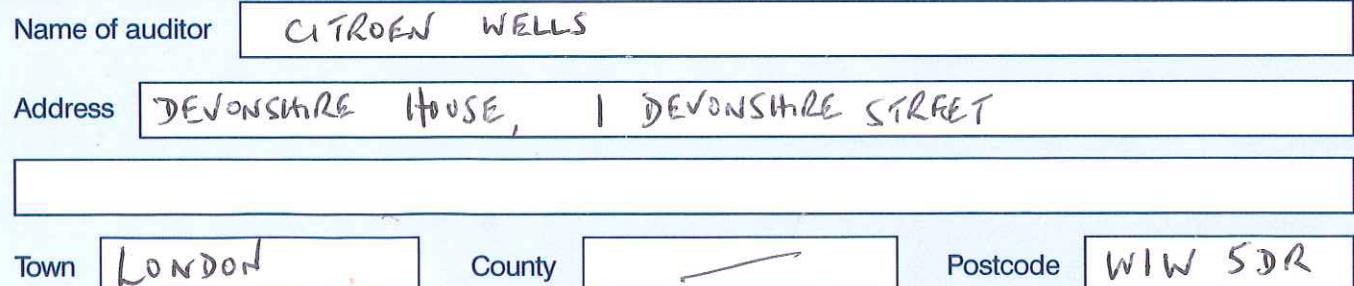 Name of auditor CITROEN WELLS
Address DEVONSHIRE HOUSE, 1 DEVONSHIRE STREET
Town LONDON County Postcode W1W 5DR